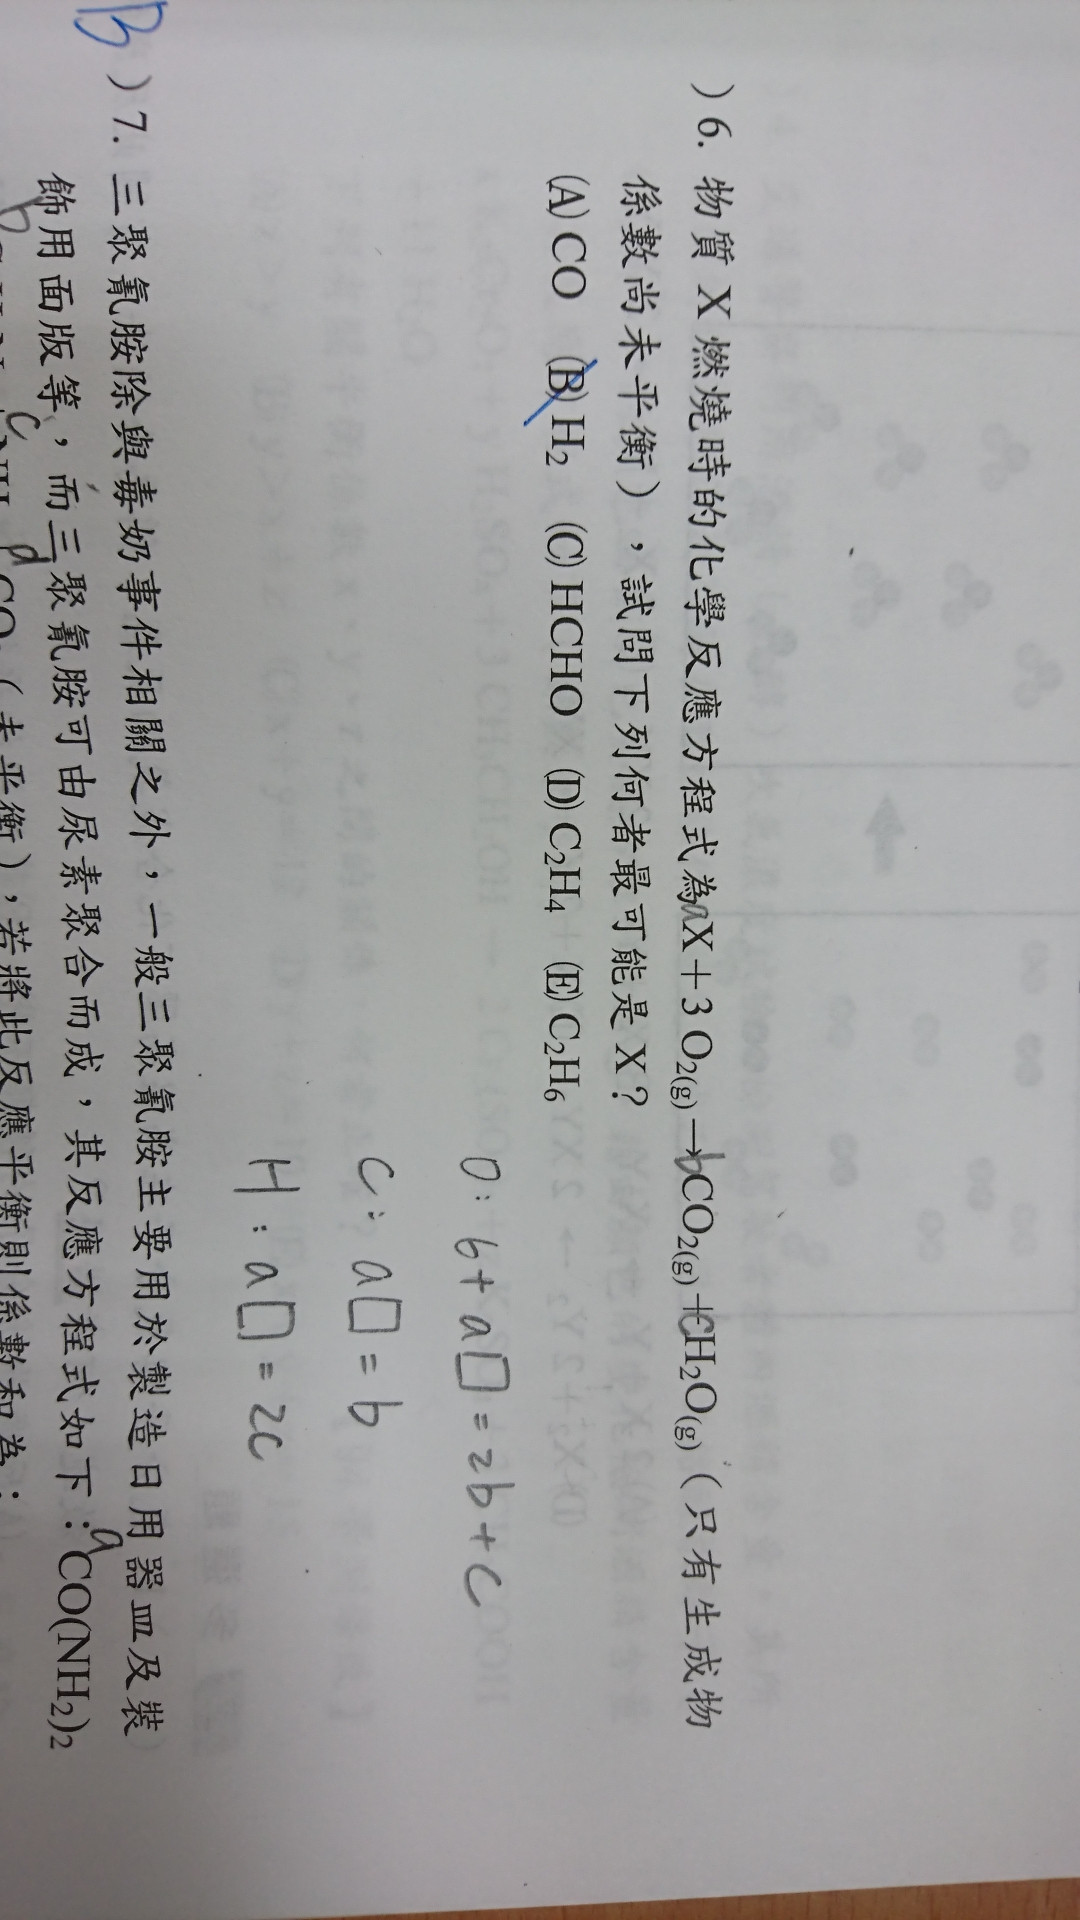 )6. 物質 X 燃燒時的化學反應方程式為aX＋3 O₂(g)→bCO₂(g)＋cH₂O(g)（只有生成物
係數尚未平衡），試問下列何者最可能是 X？
(A) CO (B) H₂ (C) HCHO (D) C₂H₄ (E) C₂H₆
O: b+a□=2b+c
C: a□=b
H: a□=2c
B )7. 三聚氰胺除與毒奶事件相關之外，一般三聚氰胺主要用於製造日用器皿及裝
飾用面版等，而三聚氰胺可由尿素聚合而成，其反應方程式如下：aCO(NH₂)₂
（未平衡），若將此反應平衡則係數和為：